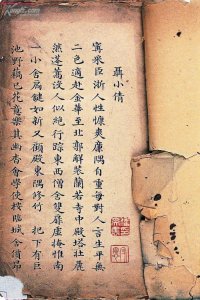 聶小倩
寗采臣浙人性慷爽廉隅自重每對人言生平無
二色適赴金華至北郭解裝蘭若寺中殿塔壯麗
然蓬蒿沒人似絕行踪東西僧舍雙扉虛掩惟南
一小舍扃鍵如新又顧殿東隅修竹把下有巨
池野藕已花意樂其幽杳會學使按臨城舍價昂